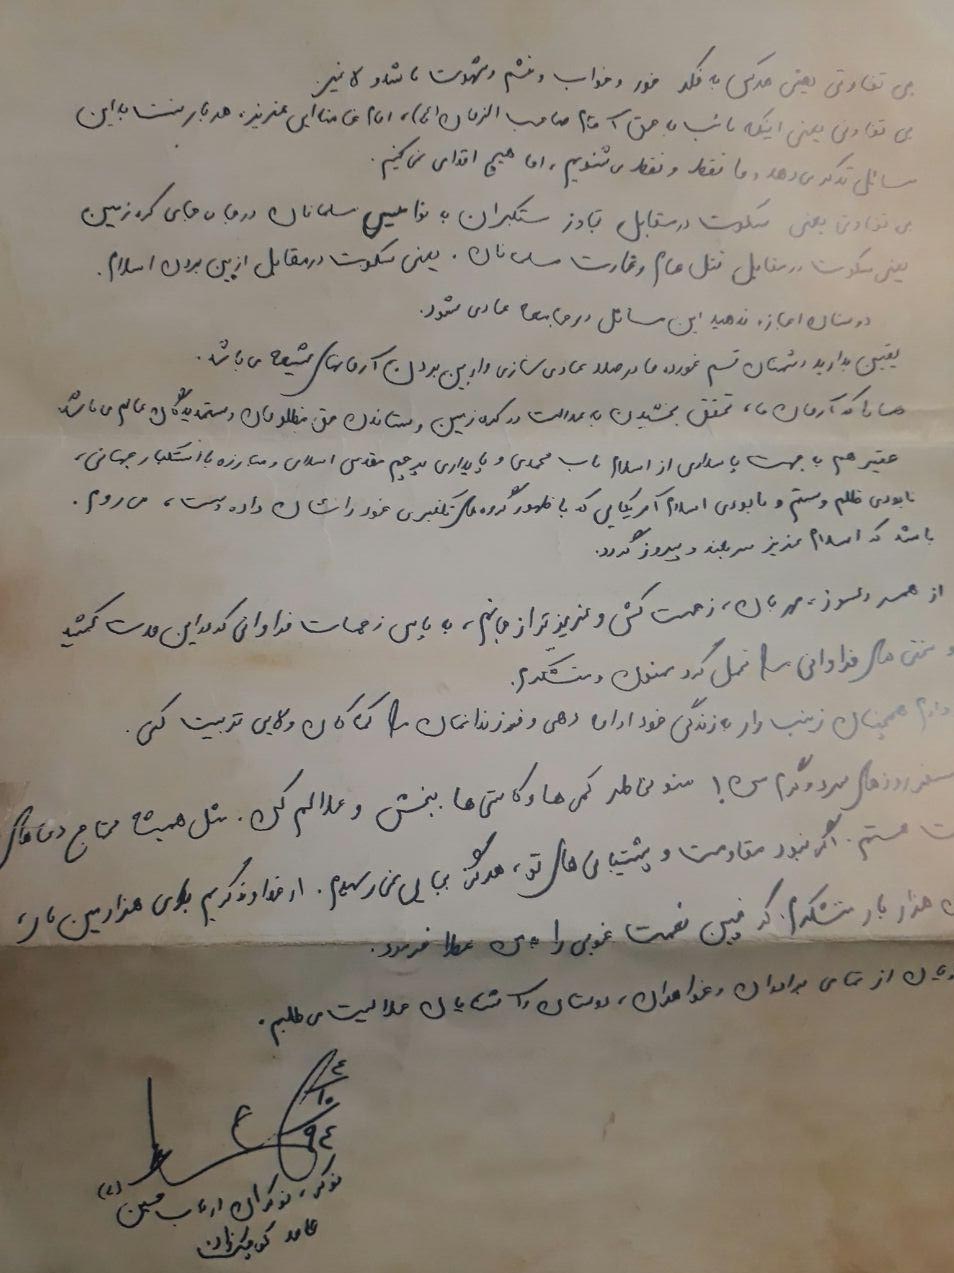 بی تفاوتی یعنی هرکس به فکر خور و خواب و خشم و شهوت باشد و لاغیر
بی تفاوتی یعنی اینکه نائب بر حق آقام صاحب الزمان (عج)، امام خامنه‌ایی عزیز، هر بار نسبت به این
مسائل تذکر می‌دهد و ما فقط و فقط می‌شنویم، اما هیچ اقدامی نمی‌کنیم.
بی تفاوتی یعنی سکوت در مقابل تجاوز مستکبران به نوامیس مسلمانان در جای جای کره زمین
یعنی سکوت در مقابل قتل عام و غارت مسلمانان. یعنی سکوت در مقابل از بین بردن اسلام.
دوستان اجازه ندهید این مسائل در جامعه عادی شود.
یقین بدارید دشمنان قسم خورده ما درصدد عادی سازی و از بین بردن آرمانهای شیعه می‌باشد.
چرا که آرمان ما، تحقق بخشیدن به عدالت در کره زمین و ستاندن حق مظلومان و ستمدیدگان عالم می‌باشد.
حقیر هم به جهت پاسداری از اسلام ناب محمدی و پایداری پرچم مقدس اسلامی و مبارزه با استکبار جهانی،
نابودی ظلم و ستم و نابودی اسلام آمریکایی که با ظهور گروه‌های تکفیری خود را نشان داده است، می‌روم.
باشد که اسلام عزیز سربلند و پیروز گردد.
از همسر دلسوز، مهربان، زحمت کش و عزیزتر از جانم، به پاس زحمات فراوانی که در این مدت کشید
و سختی های فراوانی را تحمل کرد ممنون و متشکرم.
همچنان زینب وار به زندگی خود ادامه دهی و فرزندانمان را کماکان ولایی تربیت کنی.
روزهای سرد و گرم من! منو بخاطر کمی‌ها و کاستی‌ها ببخش و حلالم کن. مثل همیشه محتاج دعاهای
هستم. اگر نبود مقاومت و پشتیبانی های تو، هرگز بجایی نمی‌رسیدم. از خداوند کریم برای هزارمین بار،
هزار بار متشکرم که چنین نعمت خوبی را به من عطا فرمود.
از تمامی برادران و خواهران، دوستان و آشنایان حلالیت می‌طلبم.
٩٤/١٠/٤
نوکر، نوکران ارباب حسین (ع)
حامد کوچک‌زاده